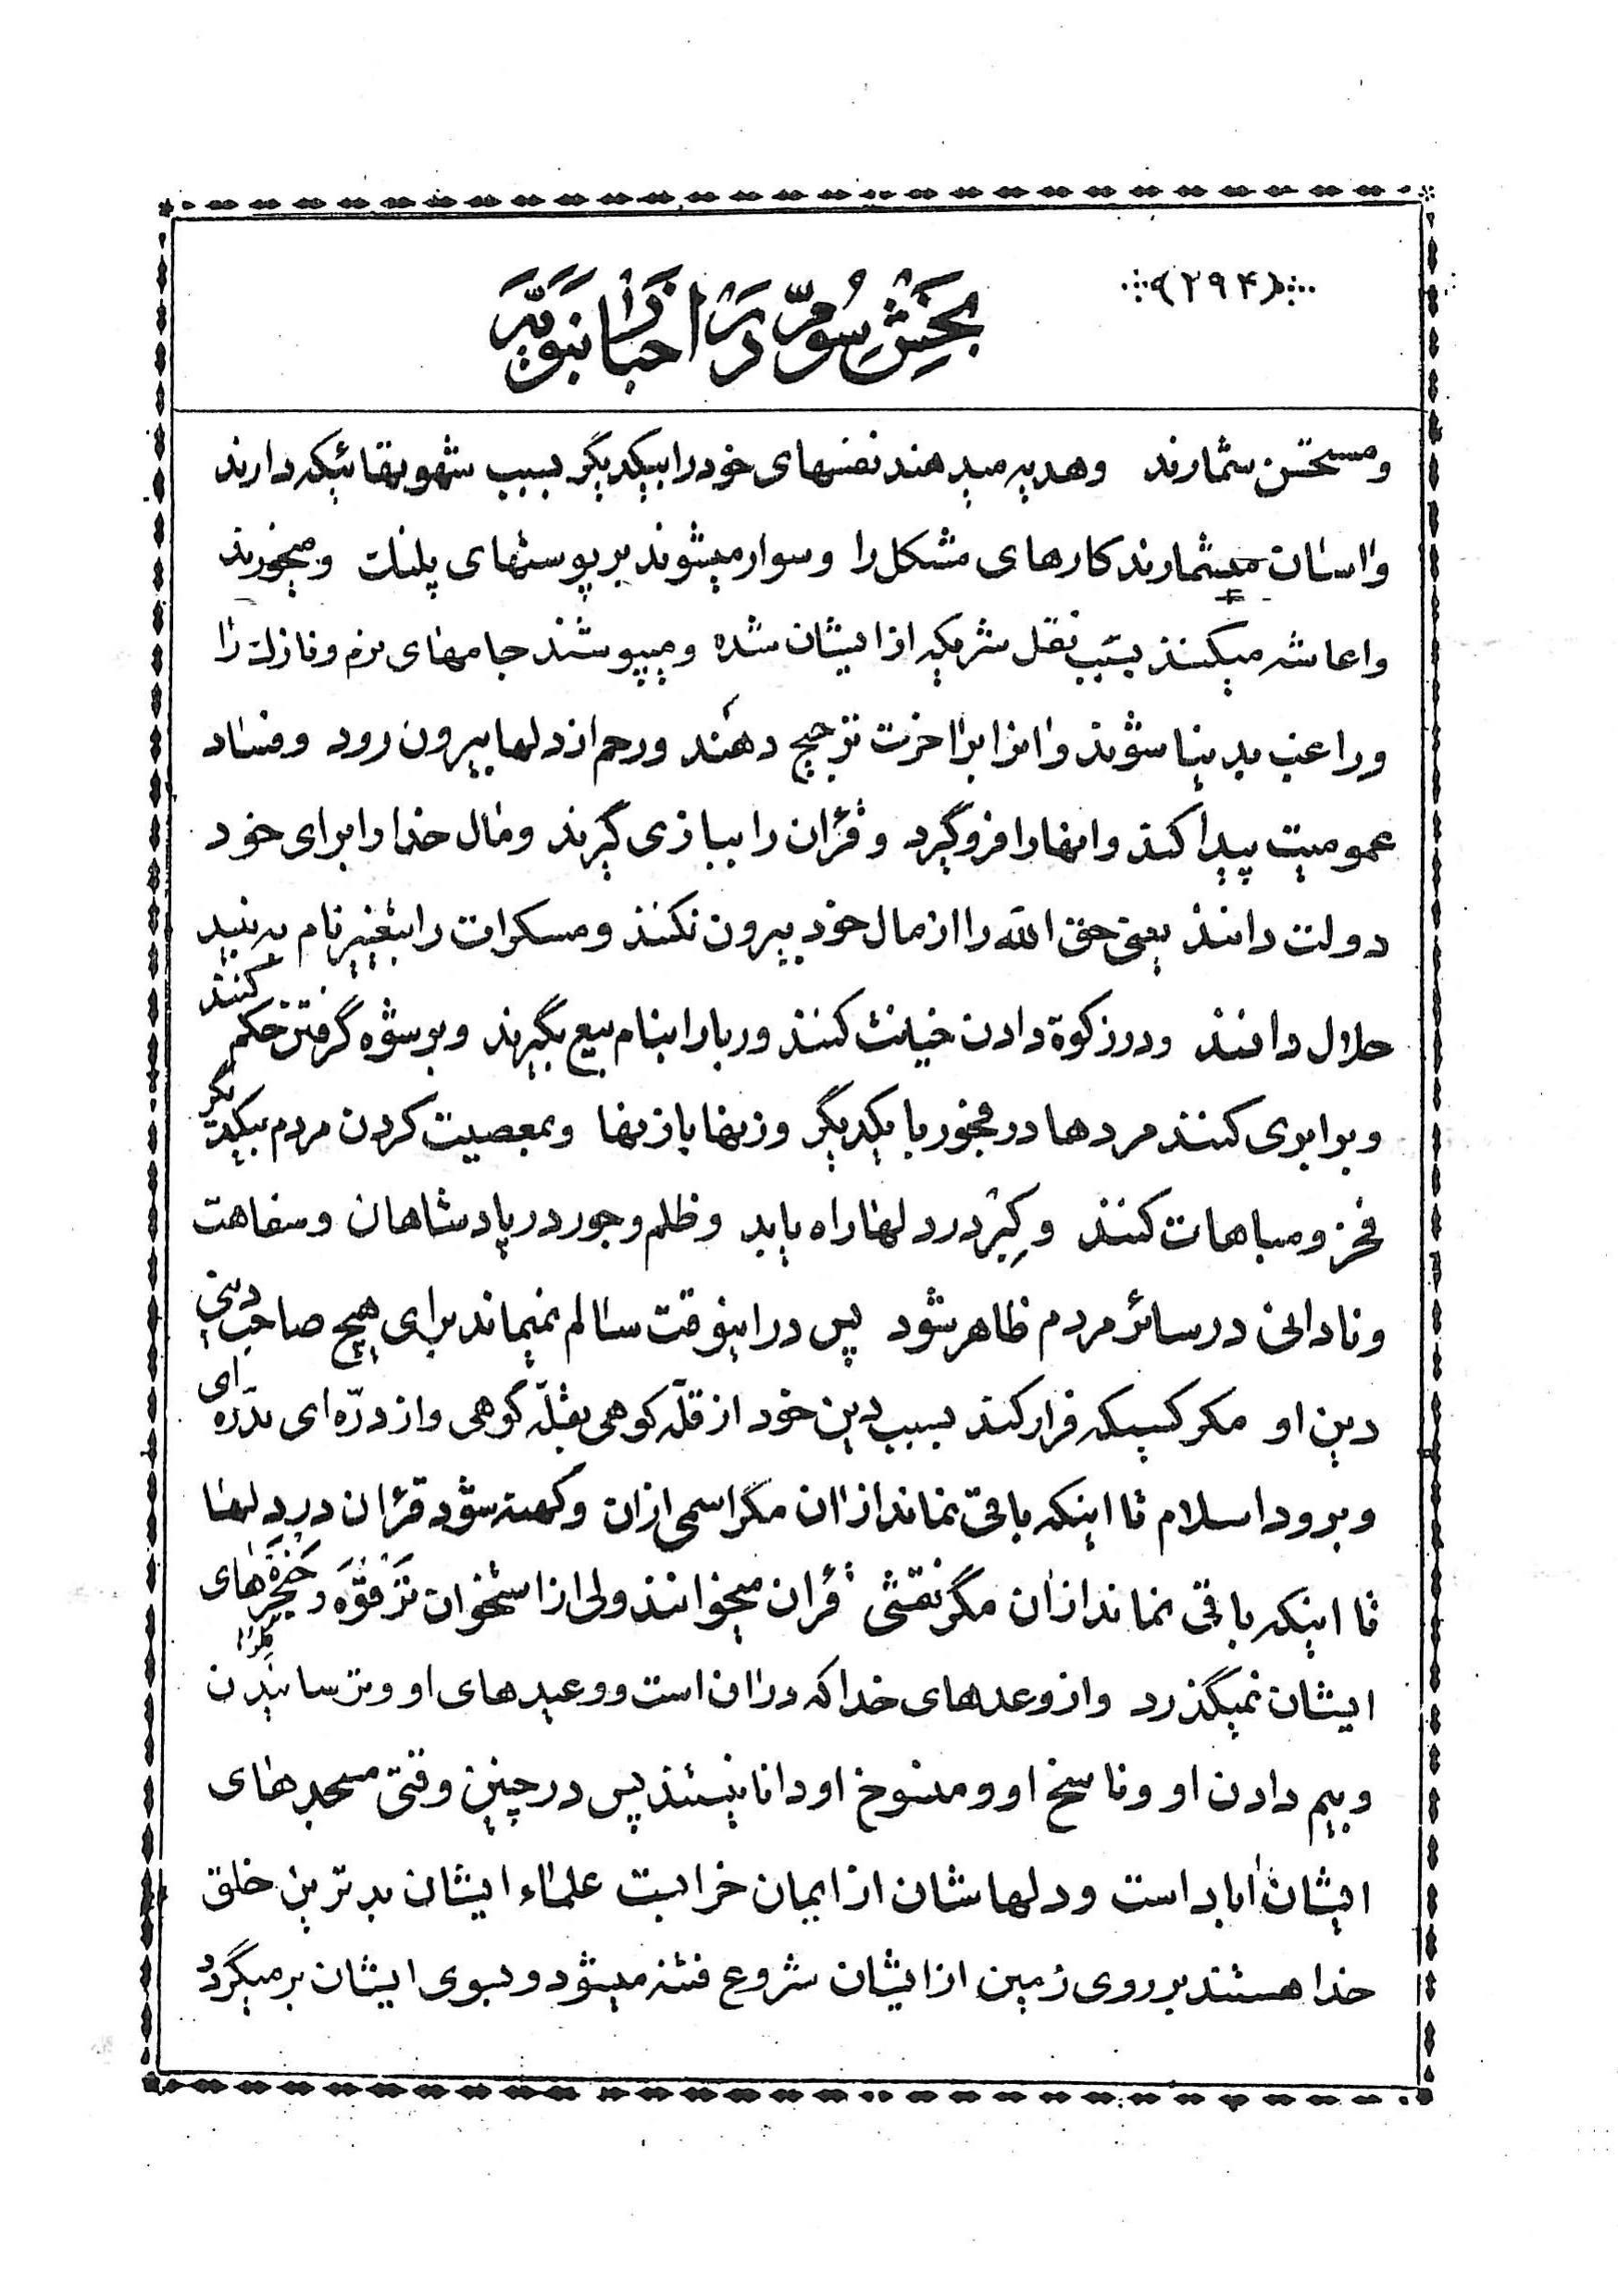 (۲۹۴)
بخش سوم در اخبار نبویه
ومستحسن شمارند وهدیه میدهند نفسهای خودرا بیکدیگر بسبب شهوتهائیکه دارند
واسان میشمارند کارهای مشکل را وسوار میشوند بر پوستهای پلنك ومیخورند
واعاشه میکنند بسبب نقل شریکه ازایشان شده ومیپوشند جامهای نرم ونازك را
وراغب بدینا شوند وانرا براخرت ترجیح دهند ورحم ازدلها بیرون رود وفساد
عمومیت پیدا کند وانهارا فروگیرد وقرٔان را ببازی گیرند ومال خدا را برای خود
دولت دانند یعنی حق الله را ازمال خود بیرون نکنند ومسکرات را بتغییر نام به نبید
حلال دانند ودرزکوة دادن خیانت کنند وربا را بنام بیع بگیرند وبرشوه گرفتن حکم کنند
وبرابری کنند مردها درفجور با یکدیگر وزنها بازنها وبمعصیت کردن مردم بیکدیگر
فخر ومباهات کنند وکِبْر دردلها راه یابد وظلم وجور در پادشاهان وسفاهت
ونادانی درسائر مردم ظاهر شود پس دراینوقت سالم نمیماند برای هیچ صاحب دینی
دین او مگر کسیکه فرار کند بسبب دین خود از قلّه کوهی بقلّه کوهی واز درّه ای بدرّه ای
وبرود اسلام تا اینکه باقی نماند ازان مگر اسمی ازان وکهنه شود قرٔان دردلها
تا اینکه باقی نماند ازان مگر نقشی قرٔان میخوانند ولی از استخوان تَرْقُوَه وحَنجَرَه های
ایشان نمیگذرد وازوعدهای خدا که دران است ووعیدهای او وترسانیدن
وبیم دادن او وناسخ او ومنسوخ او دانا نیستند پس درچنین وقتی مسجدهای
ایشان اباد است ودلهاشان ازایمان خرابست علماء ایشان بدترین خلق
خدا هستند برروی زمین ازایشان شروع فتنه میشود وبسوی ایشان برمیگردد